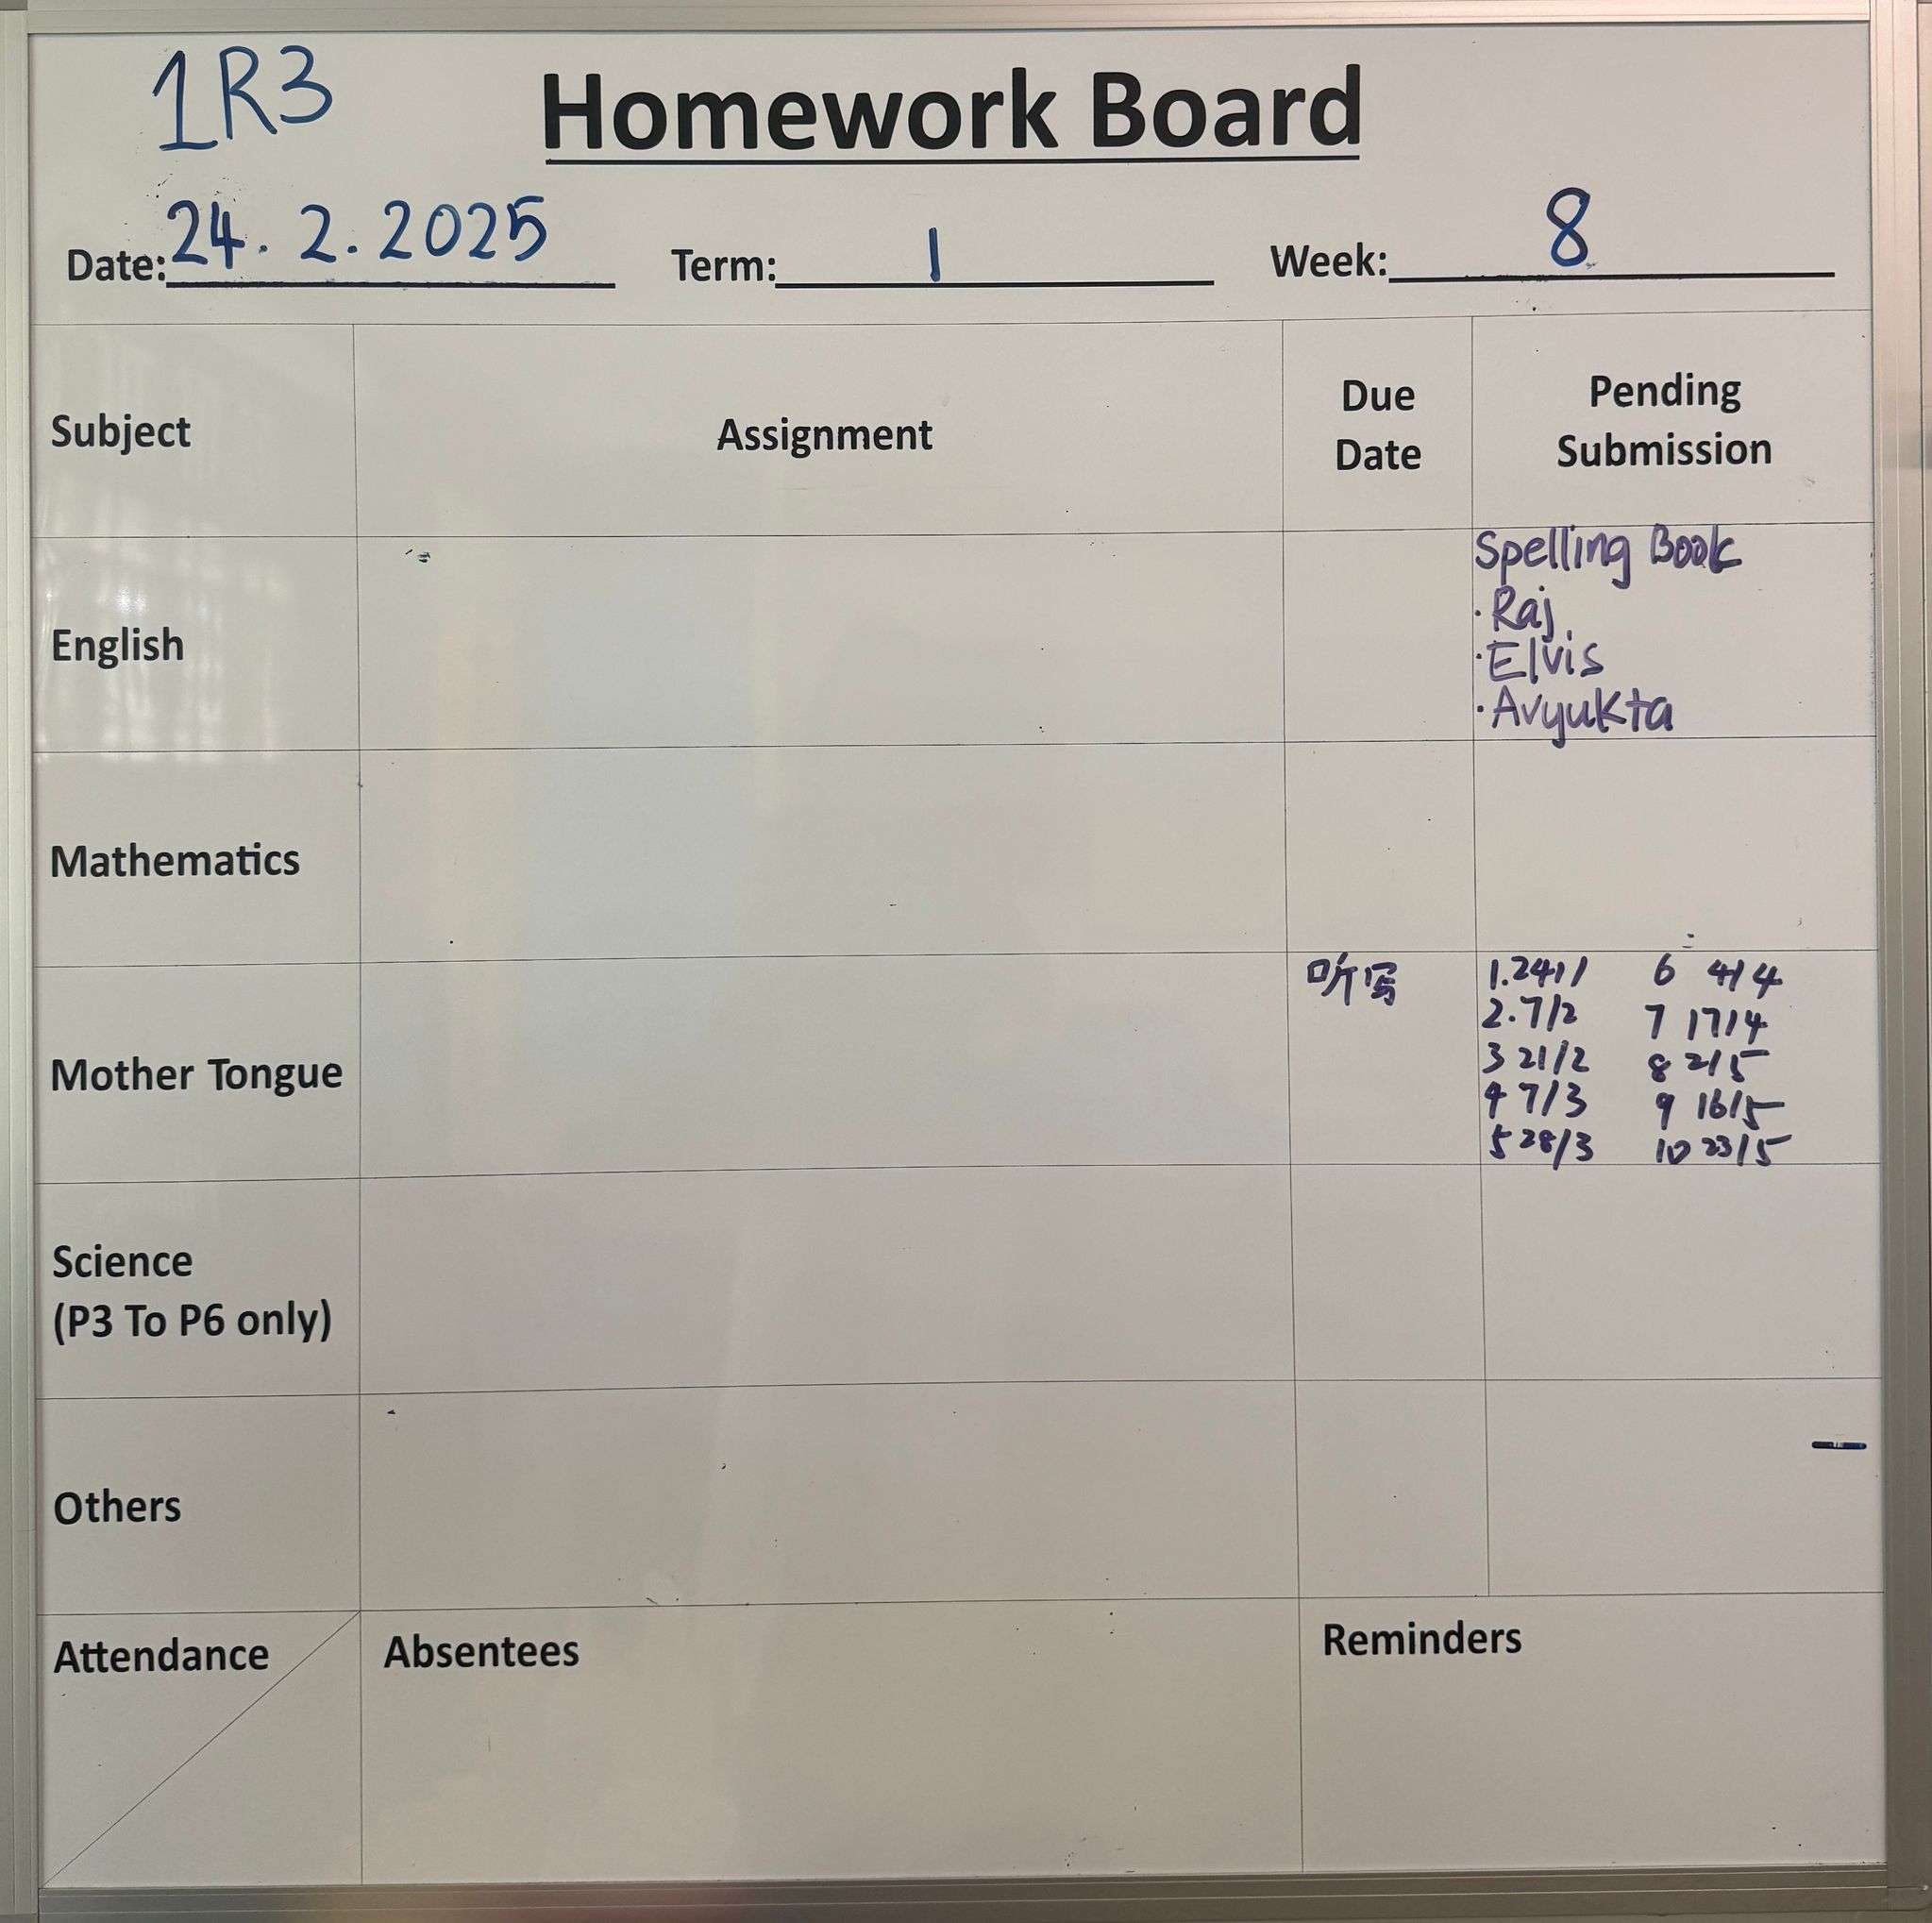 1R3
Homework Board
Date: 24.2.2025 Term: 1 Week: 8
Subject Assignment Due Date Pending Submission
English
Spelling Book
· Raj
· Elvis
· Avyukta
Mathematics
Mother Tongue
听写
1. 24/1 6 4/4
2. 7/2 7 17/4
3 21/2 8 2/5
4 7/3 9 16/5
5 28/3 10 23/5
Science
(P3 To P6 only)
Others
Attendance Absentees Reminders